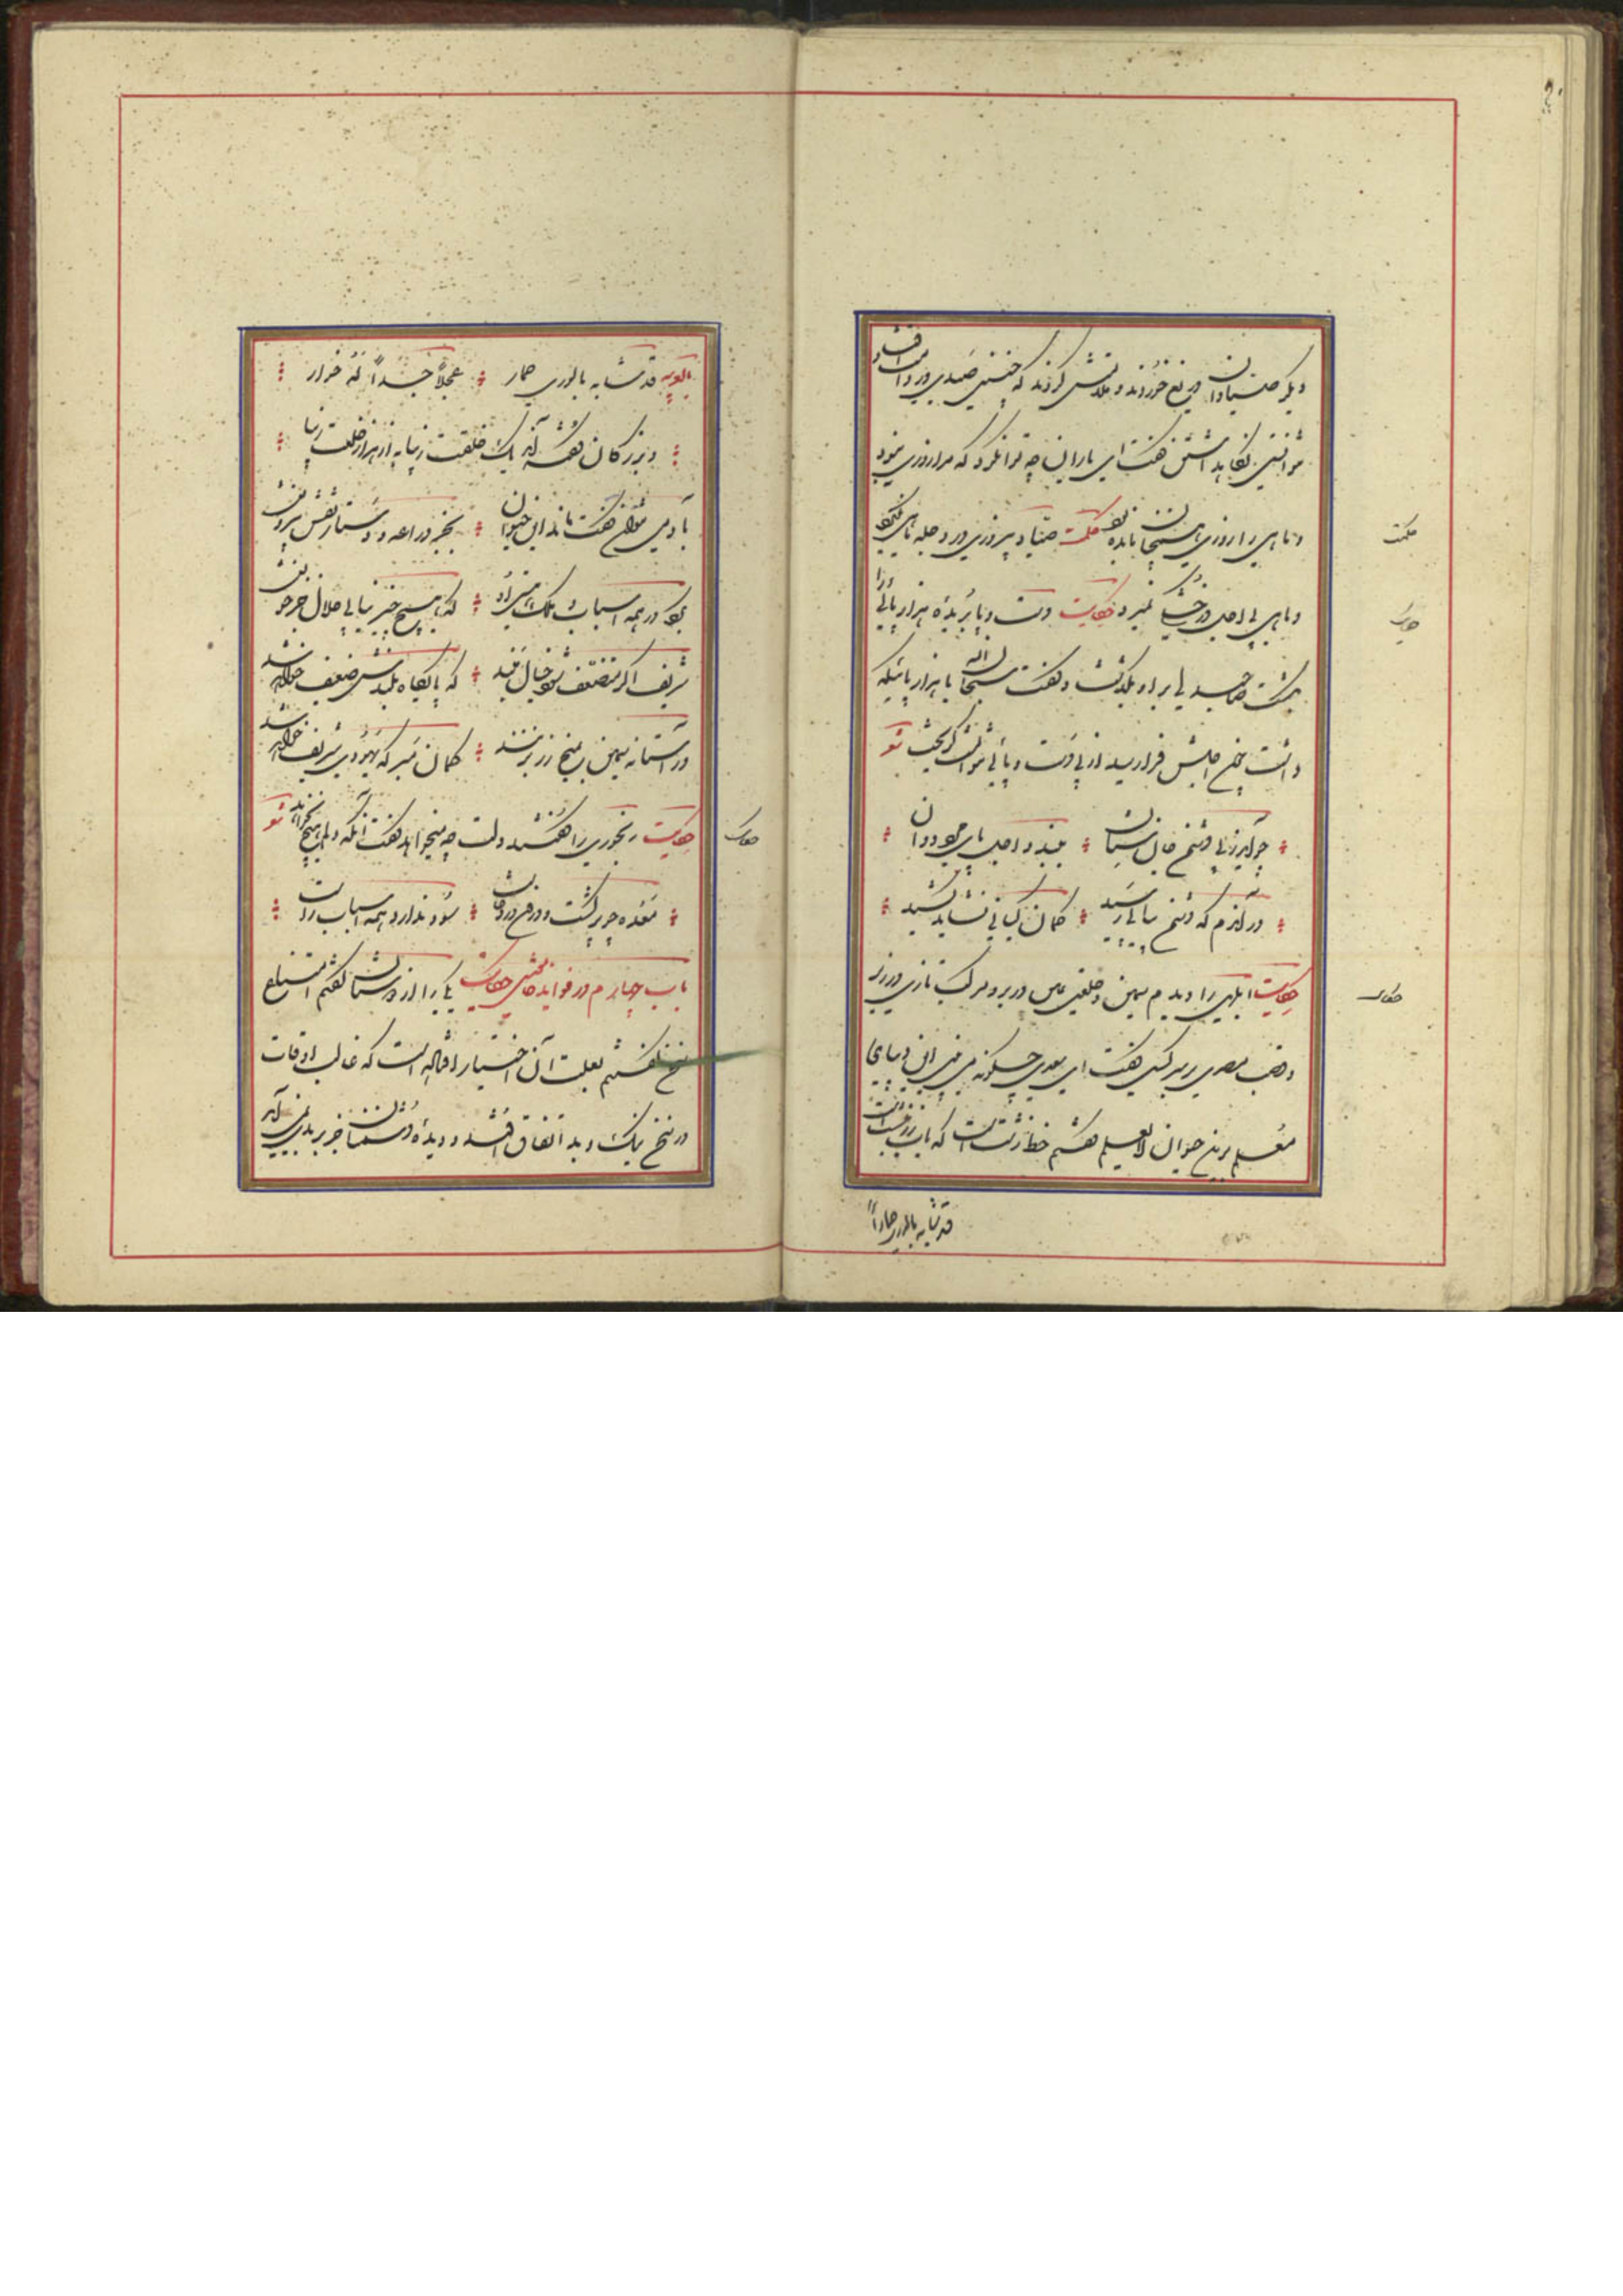 دیگر صیادان دریغ خوردند و ملامتش کردند که چنین صیدی در دامت افتاد
نتوانستی نگاه داشتن گفت ای یاران چه توانکرد که مرا روزی نبود
و ماهی را روزی همچنان مانده بود حکمت صیاد بی روزی در دجله ماهی نگیرد
و ماهی بی اجل در خشکی نمیرد حکایت دست و پا بریده هزارپائی را
بکشت صاحبدلی بر او بگذشت و گفت سبحان الله با هزار پا که
داشت چون اجلش فرا رسید از بی دست و پائی نتوانست گریخت شعر
چو آید ز پی دشمن جان ستان ببندد اجل پای مرد دوان
در آندم که دشمن پیاپی رسید کمان کیانی نشاید کشید
حکایت ابلهی را دیدم سمین و خلعتی ثمین در بر و مرکب تازی در زیر
و قصب مصری بر سر کسی گفت ای سعدی چگونه می بینی این دیبای
معلم برین حیوان لایعلم گفتم خط زشتست که بآب زر نبشته است
قد شابه بالوری حمار
حکمت
حکایت
حکایت
قد شابه بالوری حمار عجلاً جسداً له خوار
و بزرگان گفته اند یک خلقت زیبا به از هزار خلعت دیبا
بآدمی نتوان گفت ماند این حیوان بجز دراعه و دستار و نقش بیرونش
بگرد در همه اسباب و ملک و هستی او که هیچ چیز نیابی حلال جز خونش
شریف اگر متضعف شود خیال مبند که پایگاه بلندش ضعیف خواهد شد
ور آستانه سیمین بمیخ زر بزند گمان مبر که یهودی شریف خواهد شد
حکایت رنجوری را گفتند دلت چه میخواهد گفت آنکه دلم هیچ نخواهد شعر
معده چو پر گشت و درون درد خاست سود ندارد همه اسباب راست
باب چهارم در فواید خامشی حکایت یکی را از دوستان گفتم امتناع
سخن گفتنم بعلت آن اختیار افتاده است که غالب اوقات
در سخن نیک و بد اتفاق افتد و دیده دشمنان جز بر بدی نمی آید
حکایت